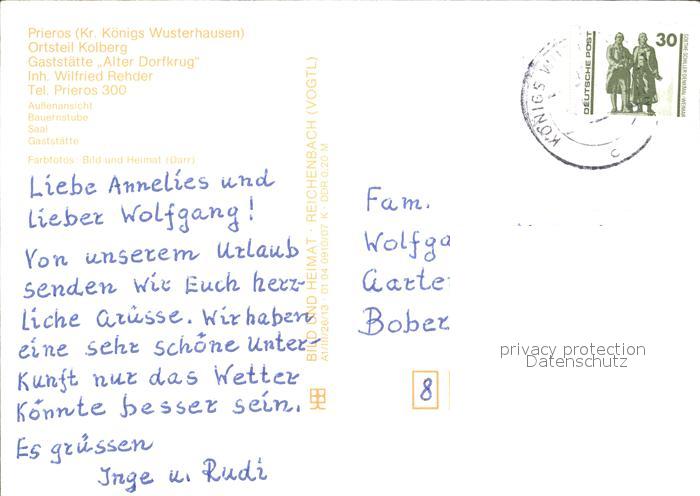 Prieros (Kr. Königs Wusterhausen)
Ortsteil Kolberg
Gaststätte „Alter Dorfkrug"
Inh. Wilfried Rehder
Tel. Prieros 300
Außenansicht
Bauernstube
Saal
Gaststätte
Farbfotos: Bild und Heimat (Darr)
Liebe Annelies und
lieber Wolfgang!
Von unserem Urlaub
senden wir Euch herz-
liche Grüsse. Wir haben
eine sehr schöne Unter-
kunft nur das Wetter
könnte besser sein.
Es grüssen
Inge u. Rudi
BILD UND HEIMAT · REICHENBACH (VOGTL)
A1/III/26/13 · 01 04 0910/07 K · DDR 0,20 M
DEUTSCHE POST
30
GOETHE-SCHILLER-DENKMAL WEIMAR
KÖNIGS W
Fam.
Wolfga
Garte
Bober
8
privacy protection
Datenschutz